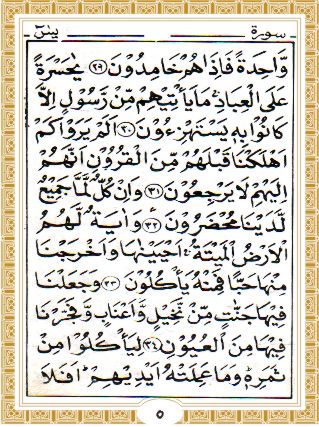 سورة يٰسٓ
وَّاحِدَةً فَاِذَا هُمْ خَامِدُوْنَ ﴿٢٩﴾ يٰحَسْرَةً
عَلَى الْعِبَادِ ۚ مَا يَاْتِيْهِمْ مِّنْ رَّسُوْلٍ اِلَّا
كَانُوْا بِهٖ يَسْتَهْزِءُوْنَ ﴿٣٠﴾ اَلَمْ يَرَوْا كَمْ
اَهْلَكْنَا قَبْلَهُمْ مِّنَ الْقُرُوْنِ اَنَّهُمْ
اِلَيْهِمْ لَا يَرْجِعُوْنَ ﴿٣١﴾ وَاِنْ كُلٌّ لَّمَّا جَمِيْعٌ
لَّدَيْنَا مُحْضَرُوْنَ ﴿٣٢﴾ وَاٰيَةٌ لَّهُمُ
الْاَرْضُ الْمَيْتَةُ ۚ اَحْيَيْنٰهَا وَاَخْرَجْنَا
مِنْهَا حَبًّا فَمِنْهُ يَاْكُلُوْنَ ﴿٣٣﴾ وَجَعَلْنَا
فِيْهَا جَنّٰتٍ مِّنْ نَّخِيْلٍ وَّاَعْنَابٍ وَّفَجَّرْنَا
فِيْهَا مِنَ الْعُيُوْنِ ﴿٣٤﴾ لِيَاْكُلُوْا مِنْ
ثَمَرِهٖ ۙ وَمَا عَمِلَتْهُ اَيْدِيْهِمْ ؕ اَفَلَا
٥